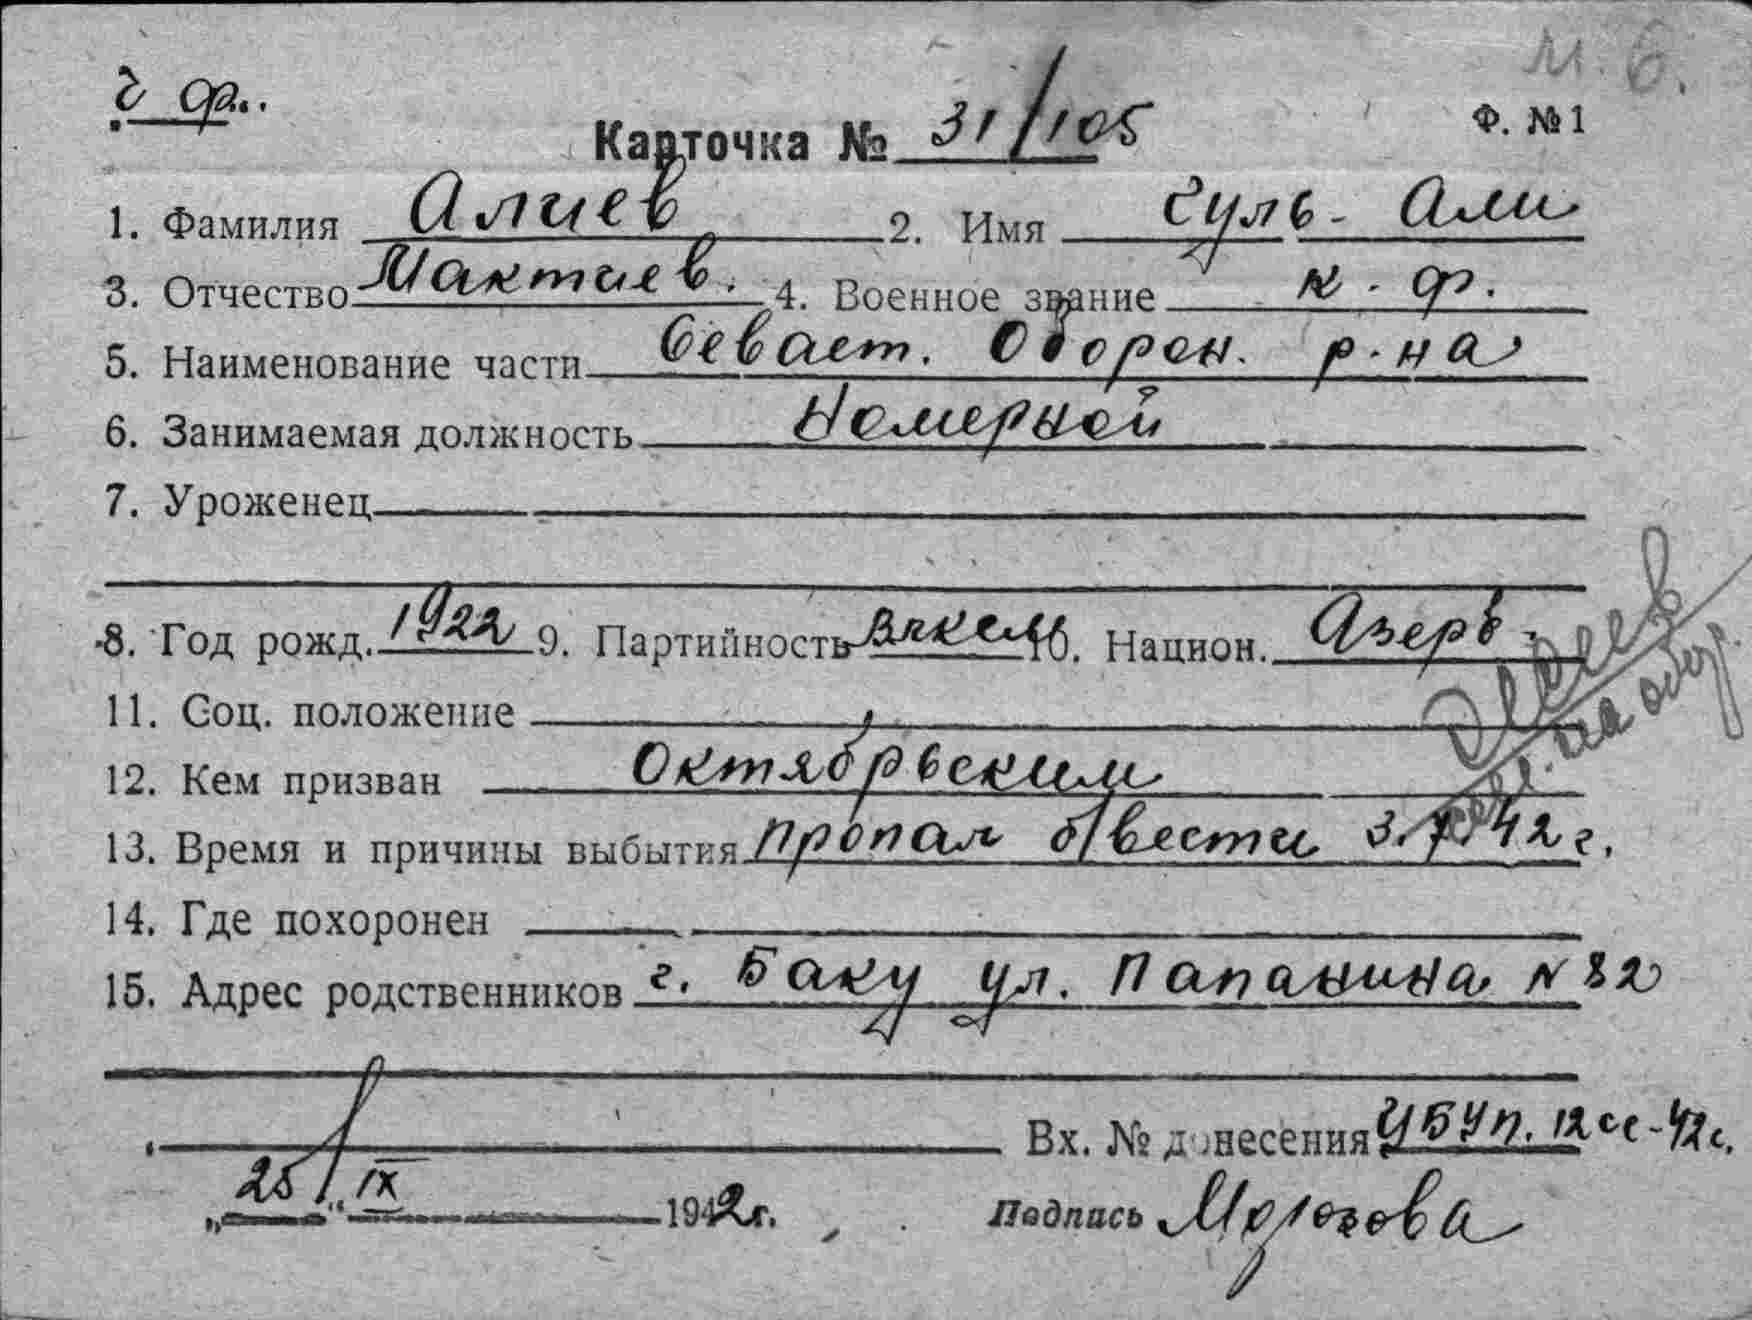 М. 6.
Ч ф..
Карточка № 31/105
Ф. №1
1. Фамилия Алиев 2. Имя Суль-Али
3. Отчество Мактиев. 4. Военное звание к.ф.
5. Наименование части Севаст. Оборон. р-на
6. Занимаемая должность Номерной
7. Уроженец
8. Год рожд. 1922 9. Партийность ВЛКСМ 10. Национ. Азерб.
11. Соц. положение
12. Кем призван Октябрьским
13. Время и причины выбытия Пропал б/вести 3.7.42 г.
14. Где похоронен
15. Адрес родственников г. Баку ул. Папанина N 82
Вх. № донесения УБУп. 12сс-42г.
„25“ IX 1942г. Подпись Морозова